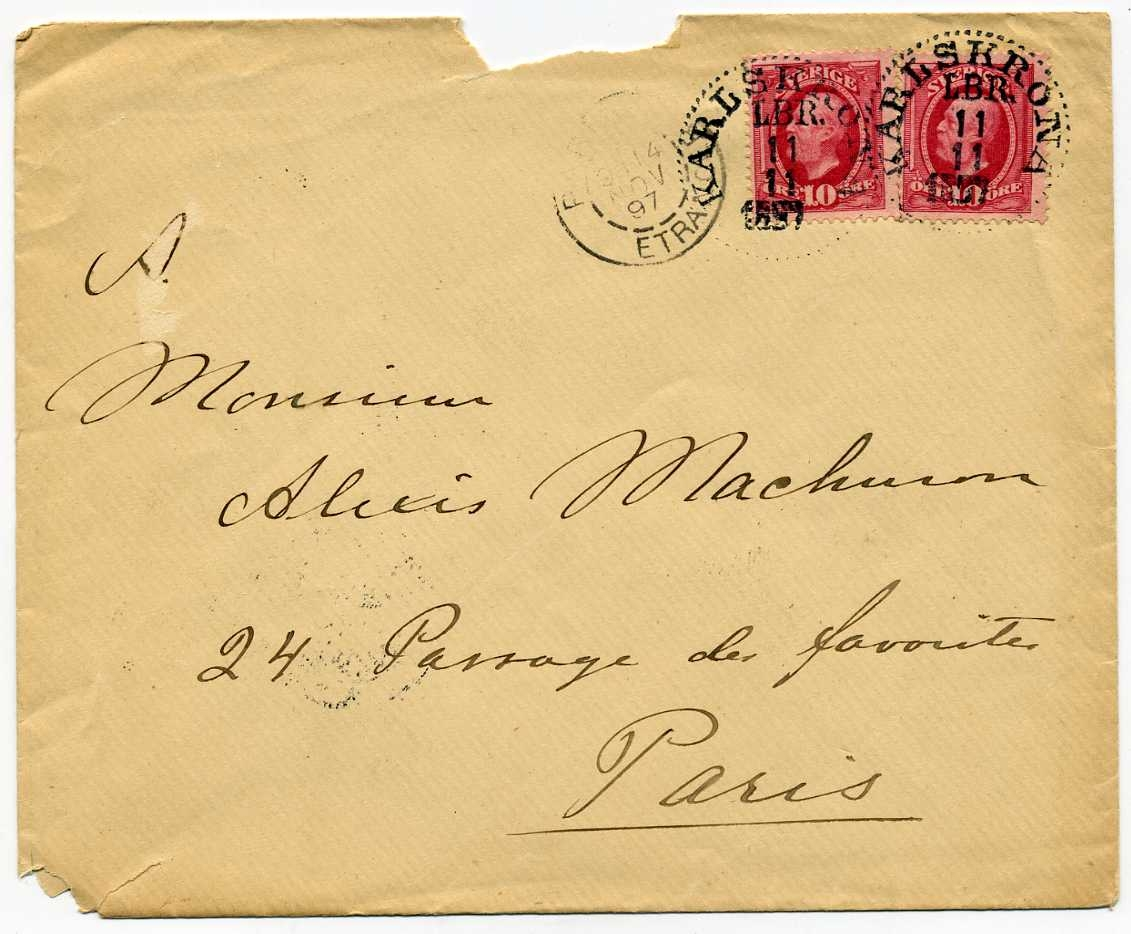 KARLSKRONA
LBR.
11
11
1897
KARLSKRONA
LBR.
11
11
1897
SVERIGE
10
ÖRE
ÖRE
SVERIGE
10
ÖRE
ÖRE
14
NOV
97
ETRANG
A.
Monsieur
Alexis Machuron
24 Passage des favorites
Paris